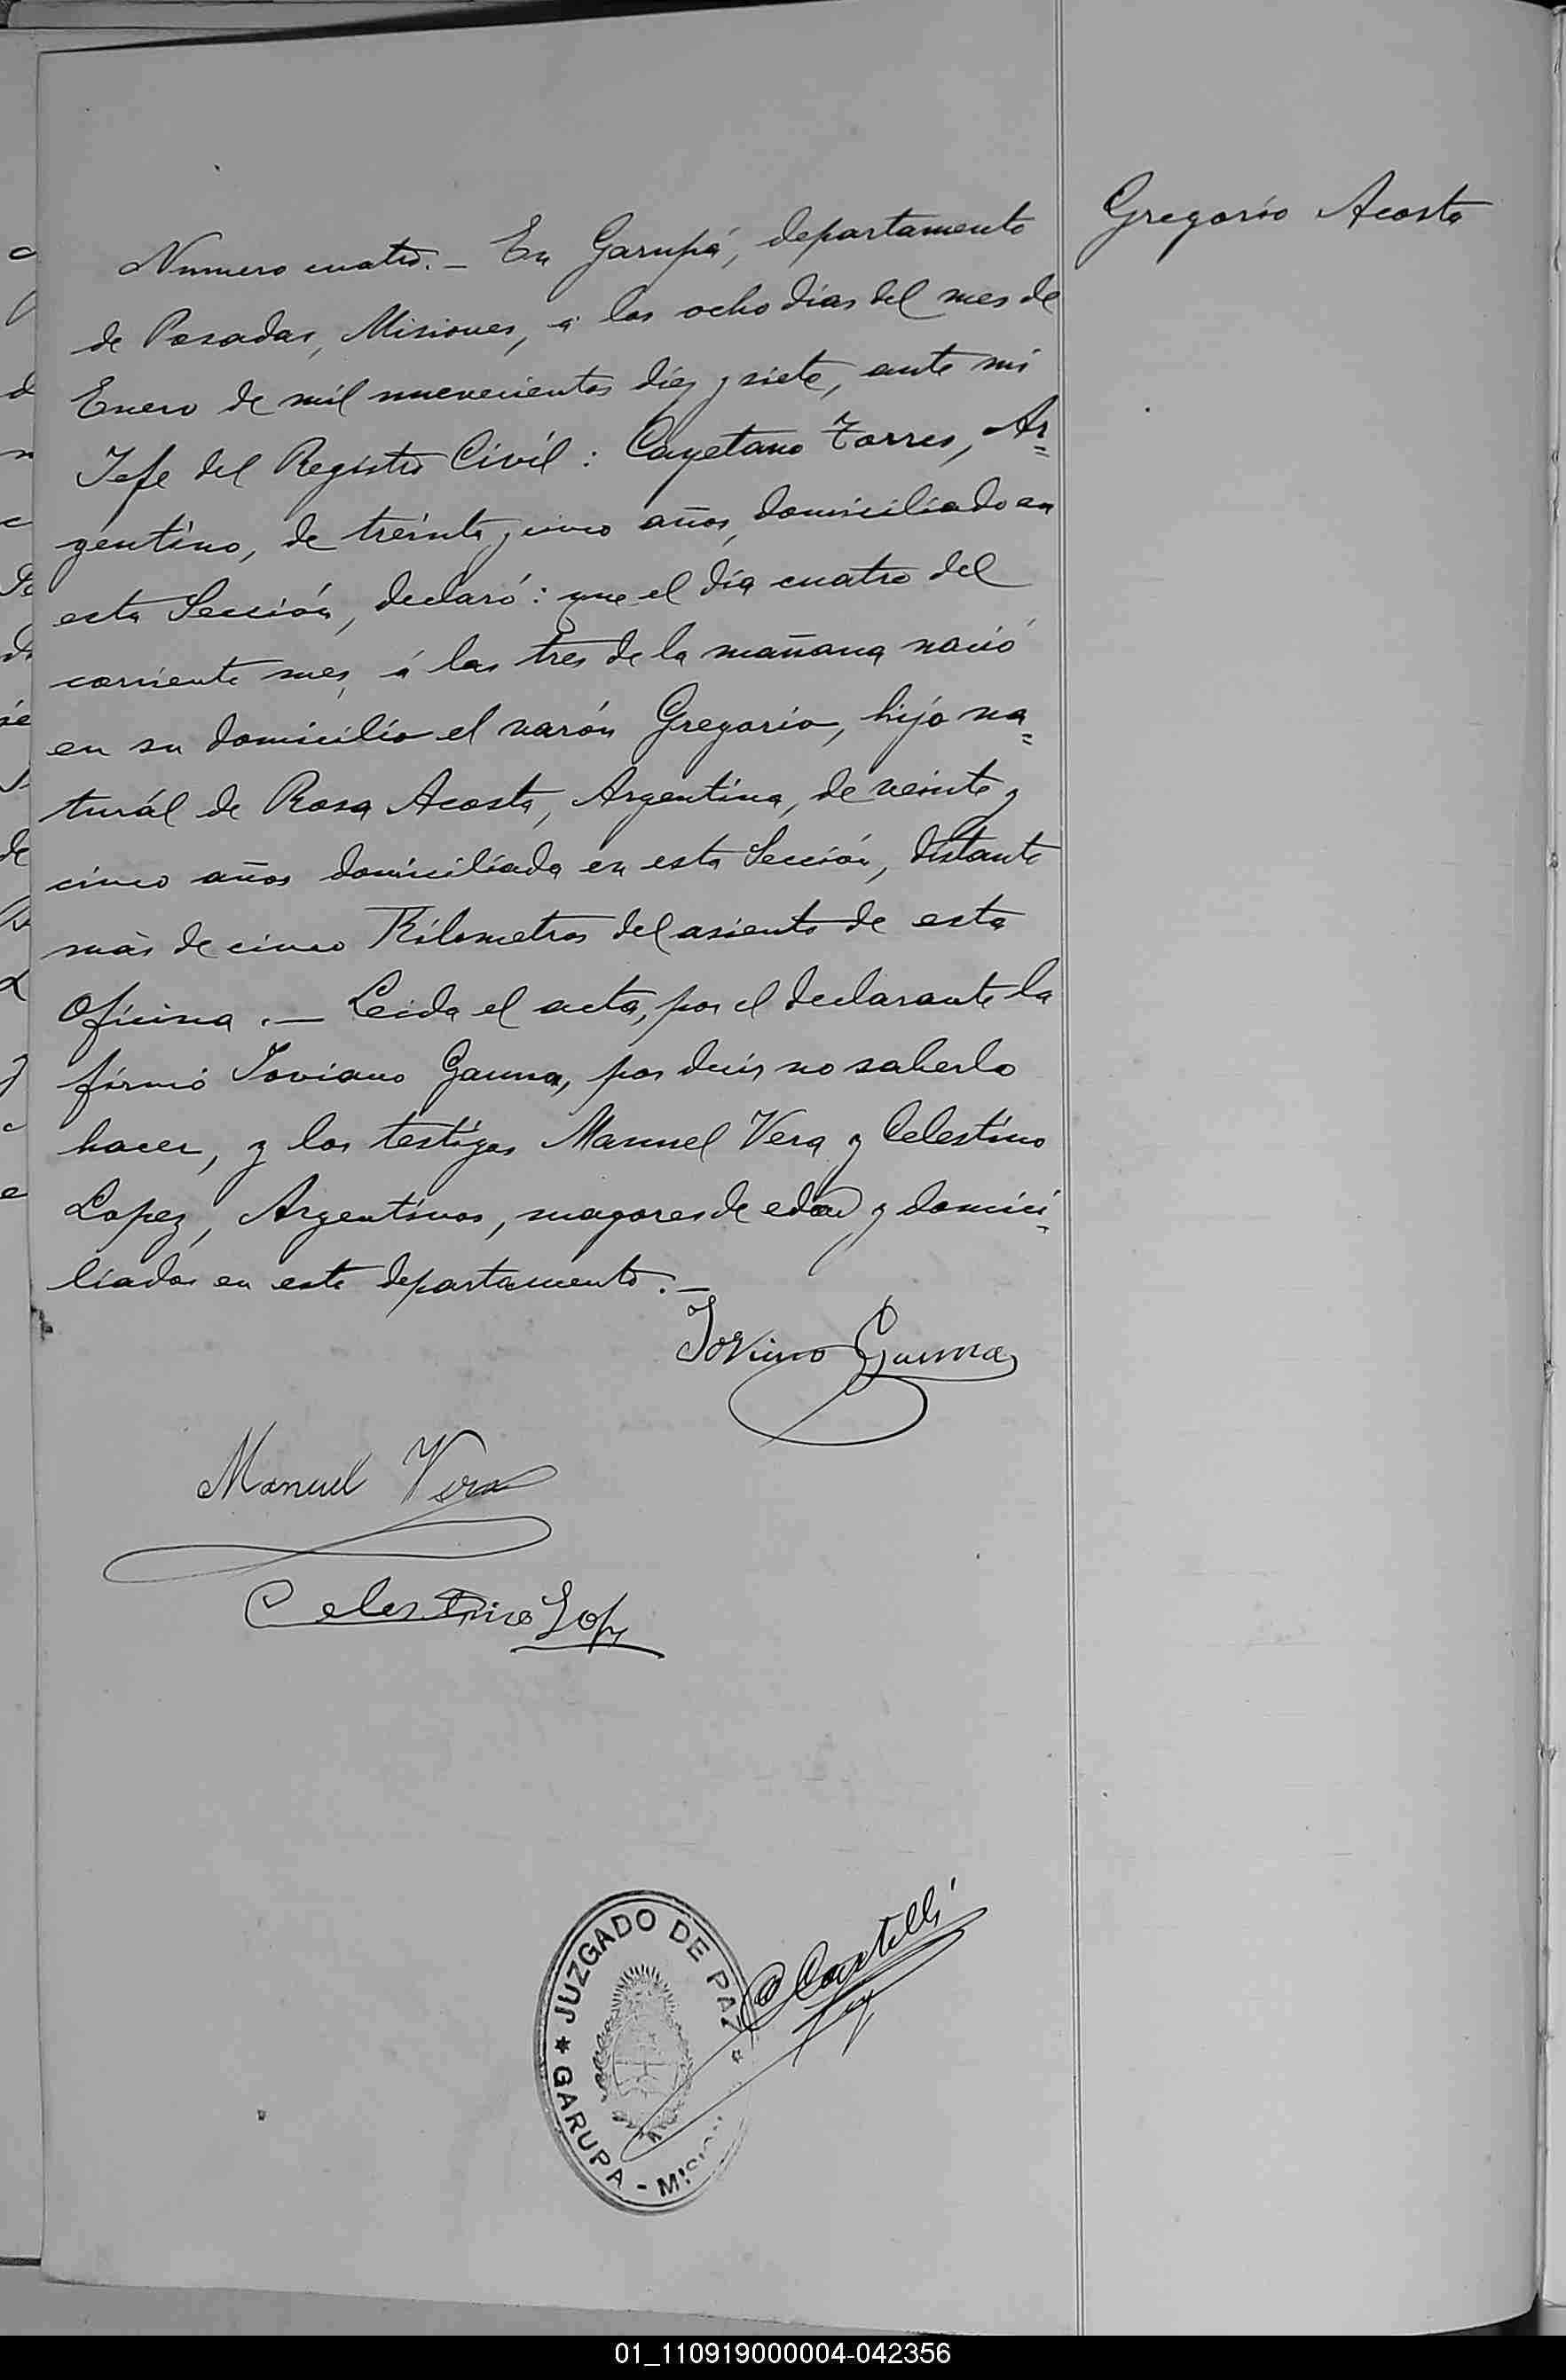 Gregorio Acosta
Numero cuatro. — En Garupá, departamento
de Posadas, Misiones, á los ocho dias del mes de
Enero de mil nuevecientos diez y siete, ante mi
Jefe del Registro Civil: Cayetano Torres, Ar=
gentino, de treinta y cinco años, domiciliado en
esta Sección, declaró: que el día cuatro del
corriente mes, á las tres de la mañana nació
en su domicilio el varón Gregorio, hijo na=
turál de Rosa Acosta, Argentina, de veinte y
cinco años domiciliada en esta Sección, distante
más de cinco Kilometros del asiento de esta
Oficina. — Leida el acta, por el declarante la
firmó Joviano Gauna, por decir no saberlo
hacer, y los testigos Manuel Vera y Celestino
Lopez, Argentinos, mayores de edad y domici=
liados en este departamento. —
Jovino Gauna
Manuel Vera
Celestino Lopz
JUZGADO DE PAZ
GARUPA - MISION
Castelli
01_110919000004-042356